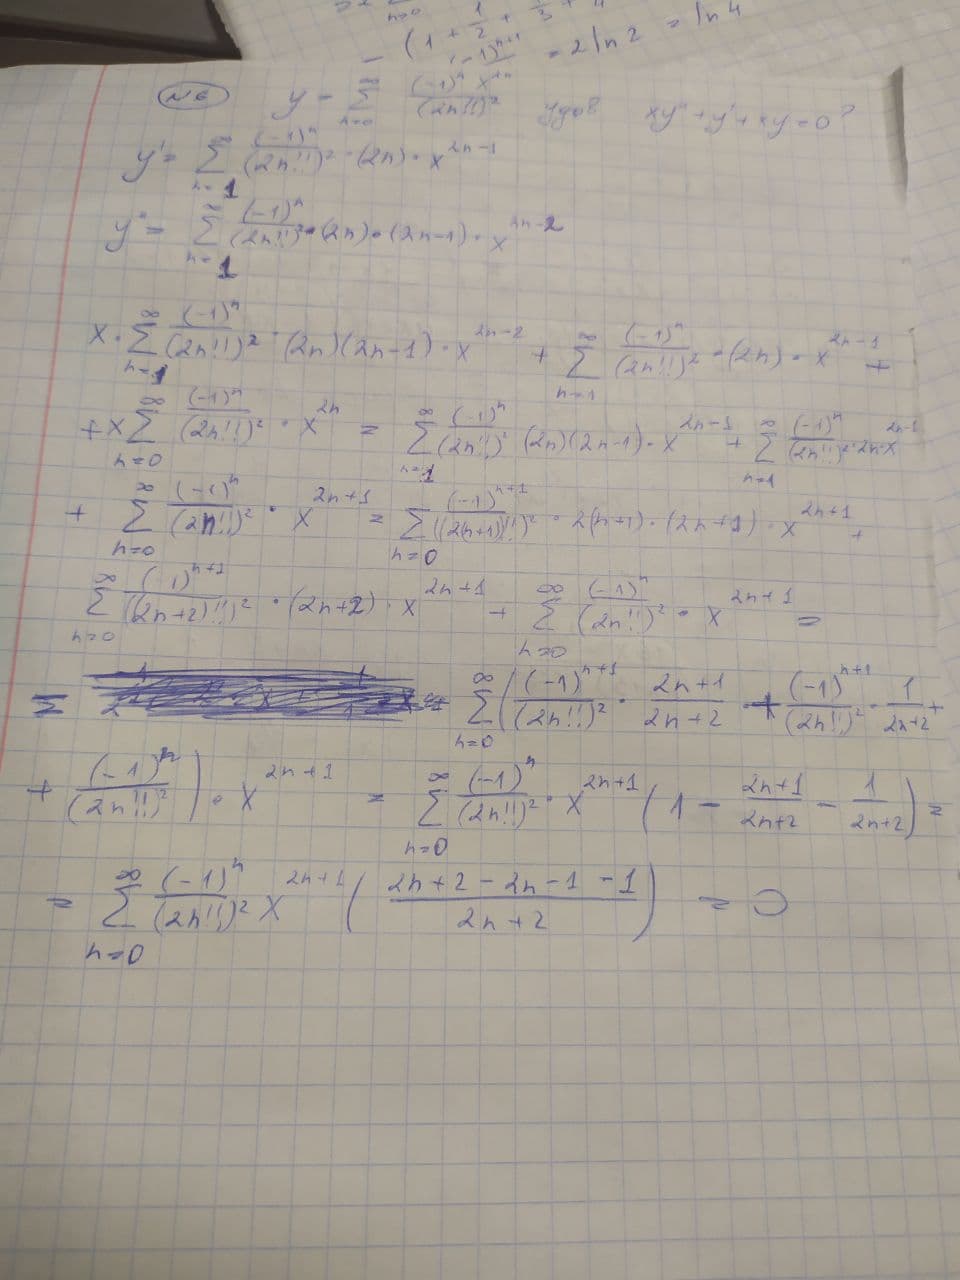 (1 + 1/2 + 1/3 + 4
= 2 ln 2 = ln 4
N6 y = ∑_{n=0}^{∞} (-1)^n x^{2n} / (2n!!)^2 Удов? xy'' + y' + xy = 0?
y' = ∑_{n=1}^{∞} (-1)^n / (2n!!)^2 · (2n) · x^{2n-1}
y'' = ∑_{n=1}^{∞} (-1)^n / (2n!!)^2 · (2n) · (2n-1) · x^{2n-2}
x · ∑_{n=1}^{∞} (-1)^n / (2n!!)^2 · (2n)(2n-1) · x^{2n-2} + ∑_{n=1}^{∞} (-1)^n / (2n!!)^2 · (2n) · x^{2n-1} +
+ x ∑_{n=0}^{∞} (-1)^n / (2n!!)^2 · x^{2n} = ∑_{n=1}^{∞} (-1)^n / (2n!!)^2 (2n)(2n-1) · x^{2n-1} + ∑_{n=1}^{∞} (-1)^n / (2n!!)^2 · 2n · x^{2n-1}
+ ∑_{n=0}^{∞} (-1)^n / (2n!!)^2 · x^{2n+1} = ∑_{n=0} (-1)^{n+1} / ((2(n+1)!!)^2 · 2(n+1) · (2n+1) · x^{2n+1} +
∑_{n=0}^{∞} (-1)^{n+1} / ((2n+2)!!)^2 · (2n+2) · x^{2n+1} + ∑_{n=0}^{∞} (-1)^n / (2n!!)^2 · x^{2n+1} =
= ∑_{n=0}^{∞} ( (-1)^{n+1} / (2n!!)^2 · (2n+1)/(2n+2) + (-1)^{n+1} / (2n!!)^2 · 1/(2n+2) +
+ (-1)^n / (2n!!)^2 ) · x^{2n+1} = ∑_{n=0}^{∞} (-1)^n / (2n!!)^2 · x^{2n+1} ( 1 - (2n+1)/(2n+2) - 1/(2n+2) ) =
= ∑_{n=0}^{∞} (-1)^n / (2n!!)^2 x^{2n+1} ( (2n+2-2n-1-1)/(2n+2) ) = 0